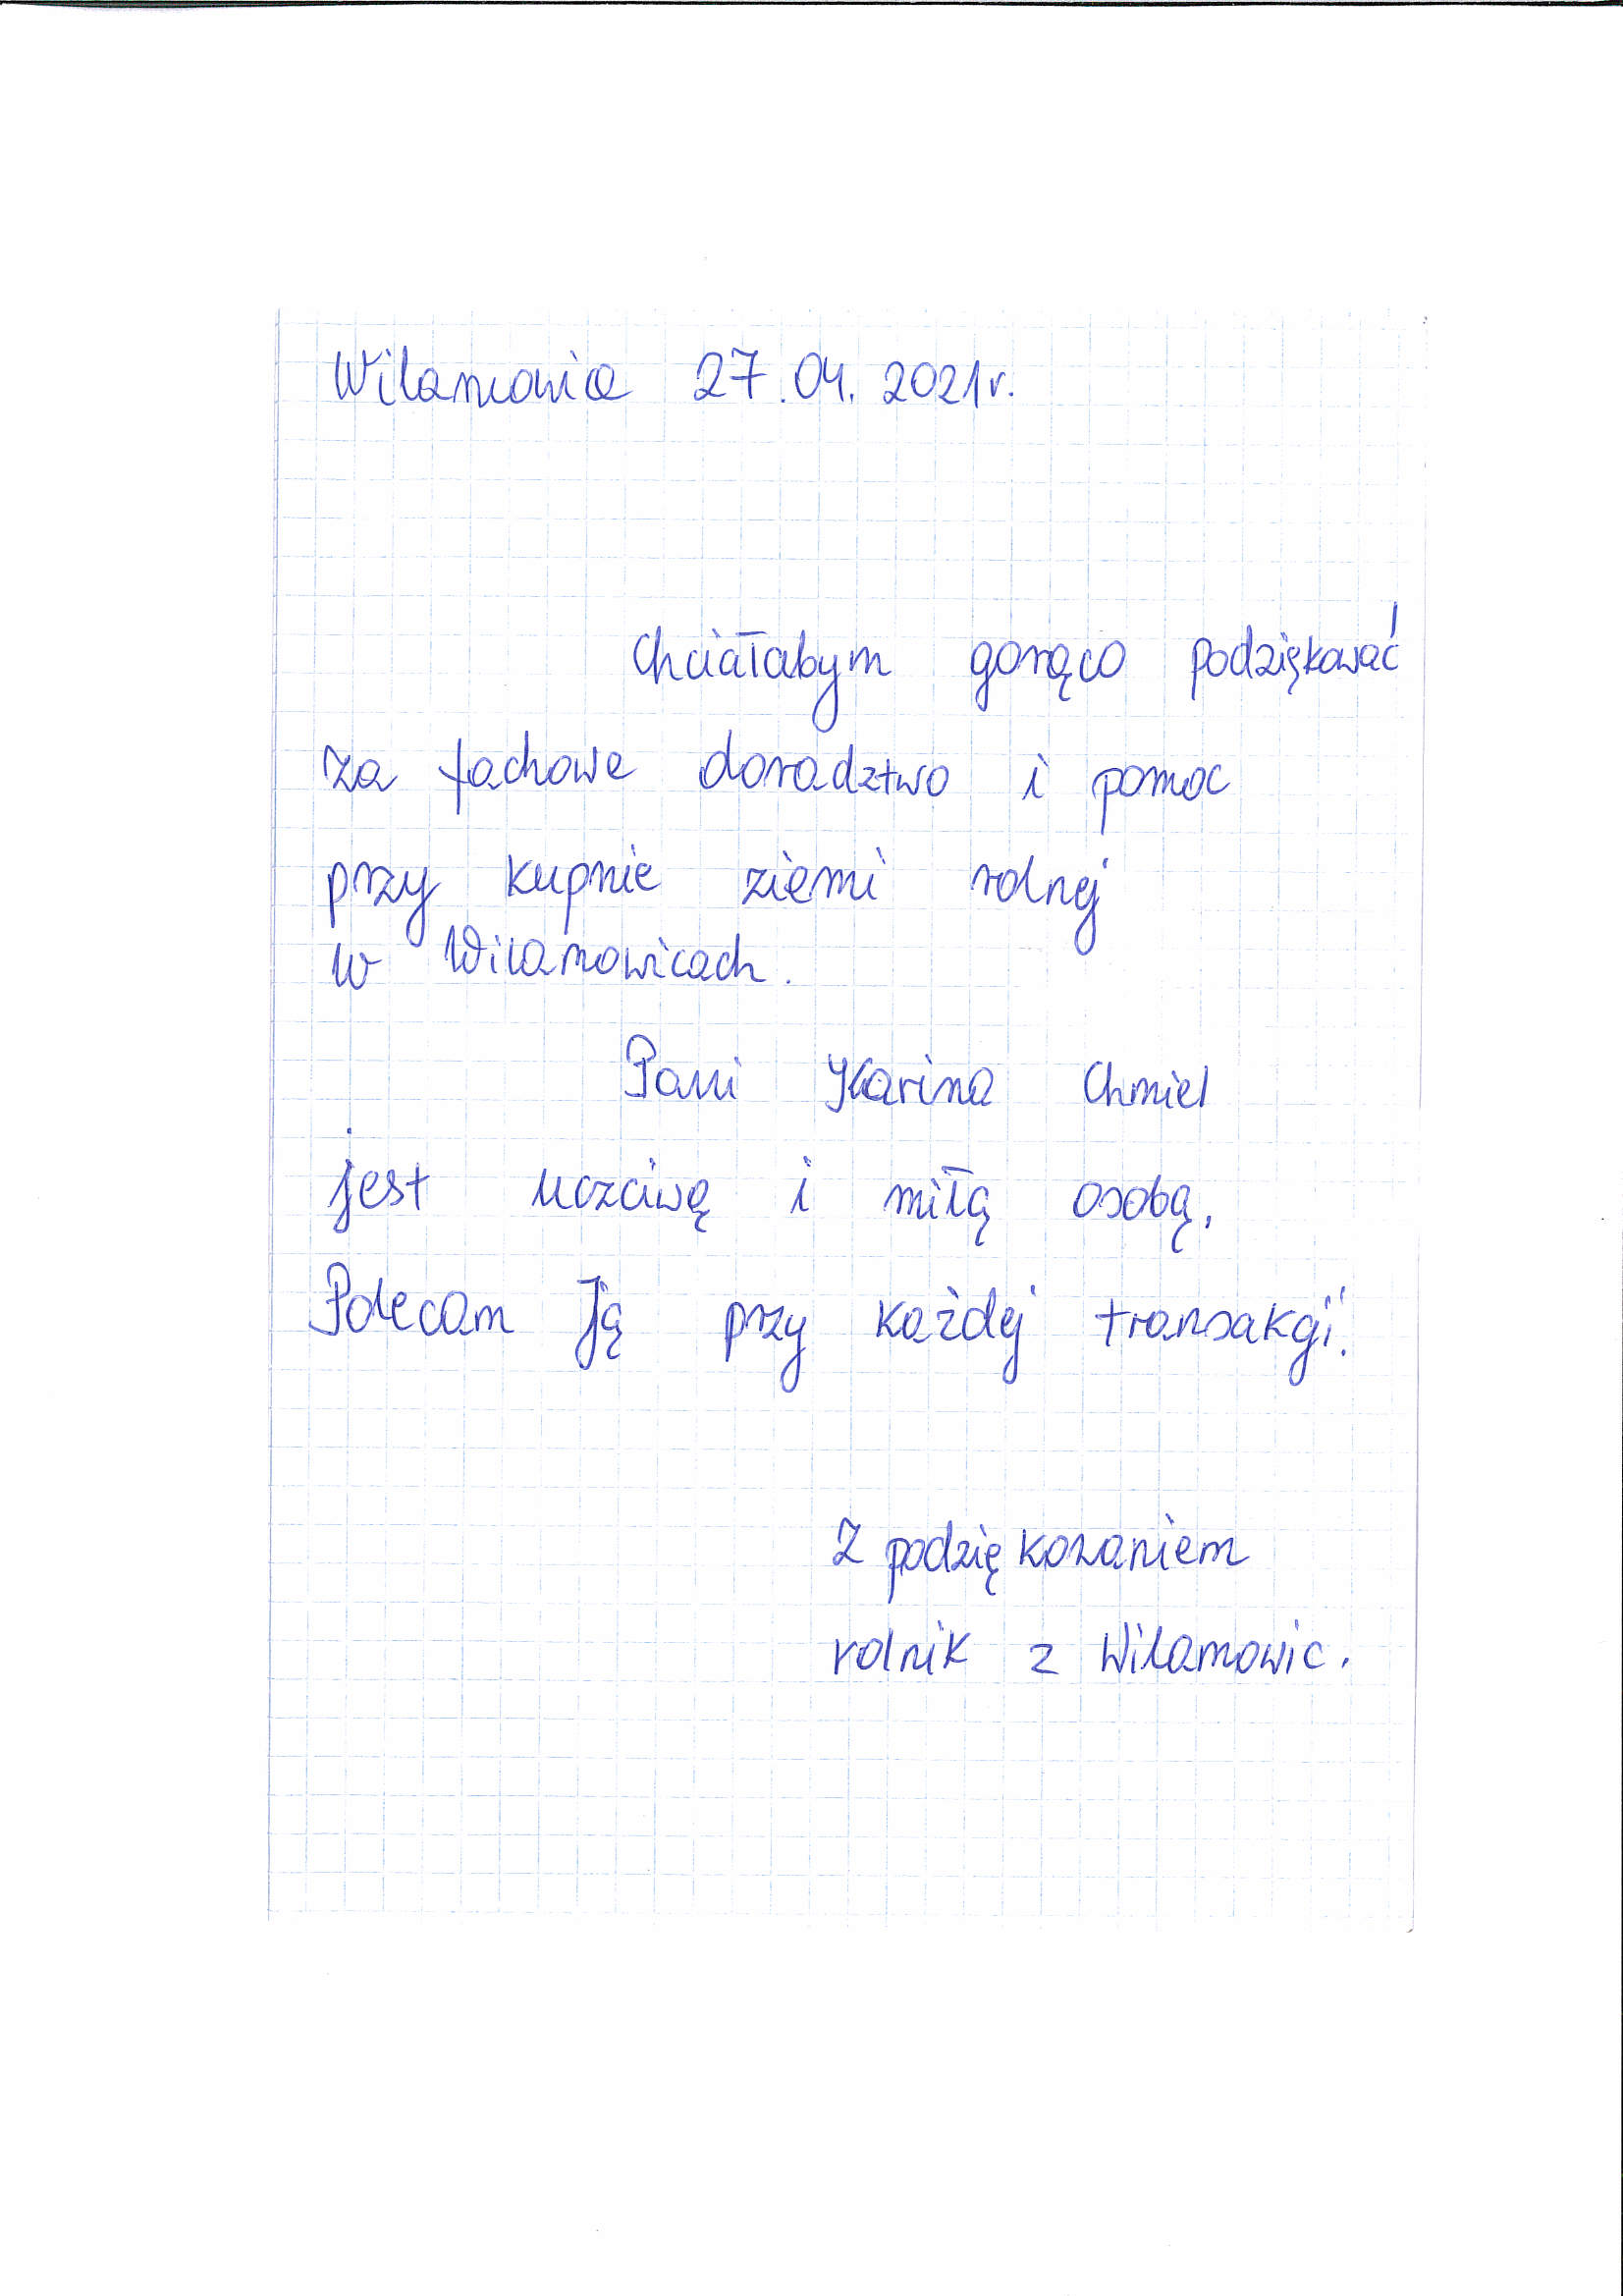 Wilamowice 27.04.2021r.
Chciałabym gorąco podziękować
za fachowe doradztwo i pomoc
przy kupnie ziemi rolnej
w Wilamowicach.
Pani Karina Chmiel
jest uczciwą i miłą osobą,
Polecam Ją przy każdej transakcji.
Z podziękowaniem
rolnik z Wilamowic.